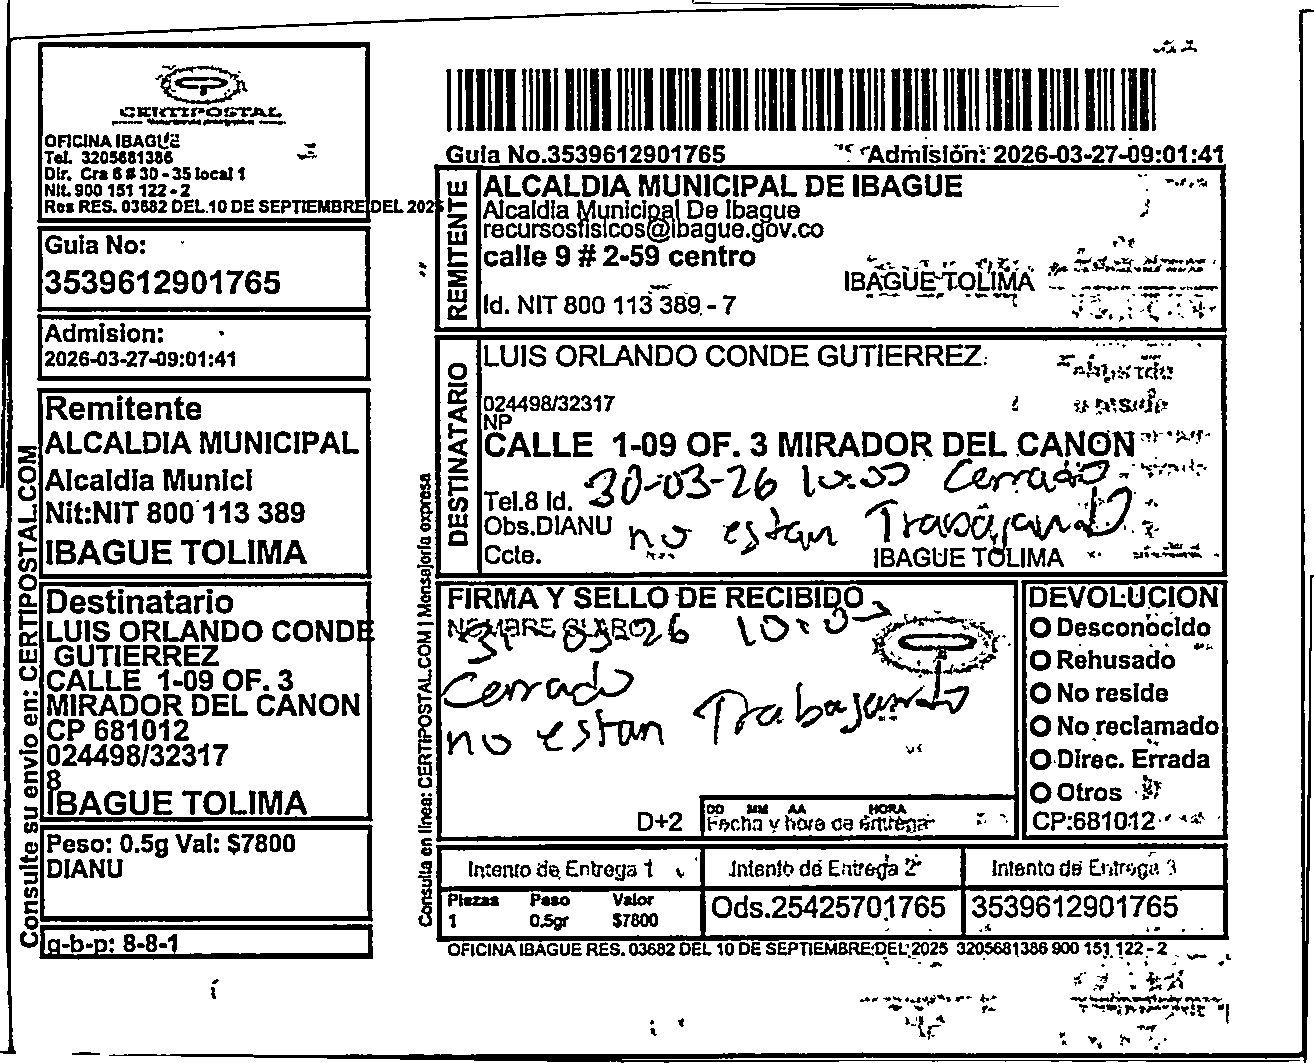 CERTIPOSTAL
OFICINA IBAGUE
Tel. 3205681386
Dir. Cra 6 # 30 - 35 local 1
Nit. 900 151 122 - 2
Res RES. 03682 DEL 10 DE SEPTIEMBRE DEL 2025
Guia No:
3539612901765
Admision:
2026-03-27-09:01:41
Remitente
ALCALDIA MUNICIPAL
Alcaldia Munici
Nit:NIT 800 113 389
IBAGUE TOLIMA
Destinatario
LUIS ORLANDO CONDE
GUTIERREZ
CALLE 1-09 OF. 3
MIRADOR DEL CANON
CP 681012
024498/32317
8
IBAGUE TOLIMA
Peso: 0.5g Val: $7800
DIANU
g-b-p: 8-8-1
Consulte su envio en: CERTIPOSTAL.COM
Guia No.3539612901765
Admisión: 2026-03-27-09:01:41
REMITENTE
ALCALDIA MUNICIPAL DE IBAGUE
Alcaldia Municipal De Ibague
recursosfisicos@ibague.gov.co
calle 9 # 2-59 centro
IBAGUE TOLIMA
Id. NIT 800 113 389 - 7
DESTINATARIO
LUIS ORLANDO CONDE GUTIERREZ
024498/32317
NP
CALLE 1-09 OF. 3 MIRADOR DEL CANON
30-03-26 10:00 Cerrado
Tel.8 Id.
Obs.DIANU
no estan Trabajando
Ccte.
IBAGUE TOLIMA
FIRMA Y SELLO DE RECIBIDO
NOMBRE
31 03 26 10:0
Cerrado
no estan Trabajando
D+2
DD MM AA HORA
Fecha y hora de entrega
DEVOLUCION
Desconocido
Rehusado
No reside
No reclamado
Direc. Errada
Otros
CP:681012
Consulta en linea: CERTIPOSTAL.COM | Mensajeria expresa
Intento de Entrega 1
Intento de Entrega 2
Intento de Entrega 3
Piezas Peso Valor
1 0.5gr $7800
Ods.25425701765
3539612901765
OFICINA IBAGUE RES. 03682 DEL 10 DE SEPTIEMBRE DEL 2025 3205681386 900 151 122 - 2